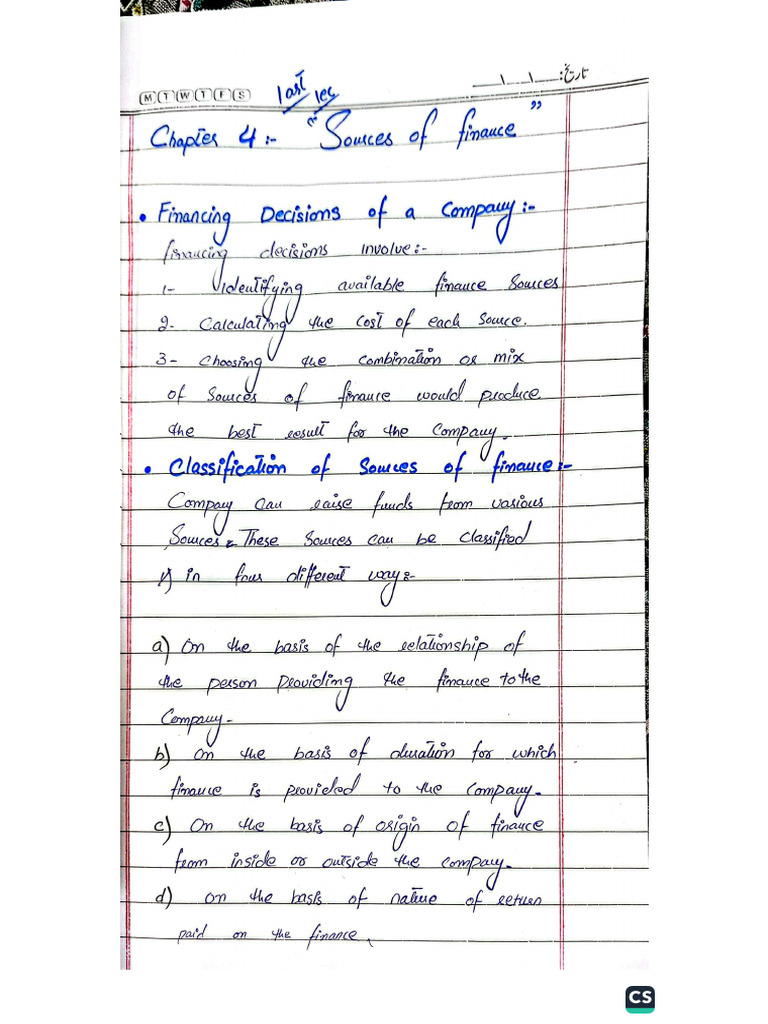 تاریخ: __\__\__
M T W T F S
last lec
Chapter 4:- "Sources of finance"
• Financing Decisions of a Company:-
financing decisions involve:-
1- Identifying available finance Sources
2- Calculating the cost of each Source.
3- Choosing the combination or mix
of Sources of finance would produce
the best result for the Company.
• Classification of Sources of finance:-
Company can raise funds from various
Sources & These Sources can be classified
1) in four different way:-
a) On the basis of the relationship of
the person providing the finance to the
Company-
b) On the basis of duration for which
finance is provided to the Company.
c) On the basis of origin of finance
from inside or outside the company.
d) on the basis of nature of return
paid on the finance.
CS